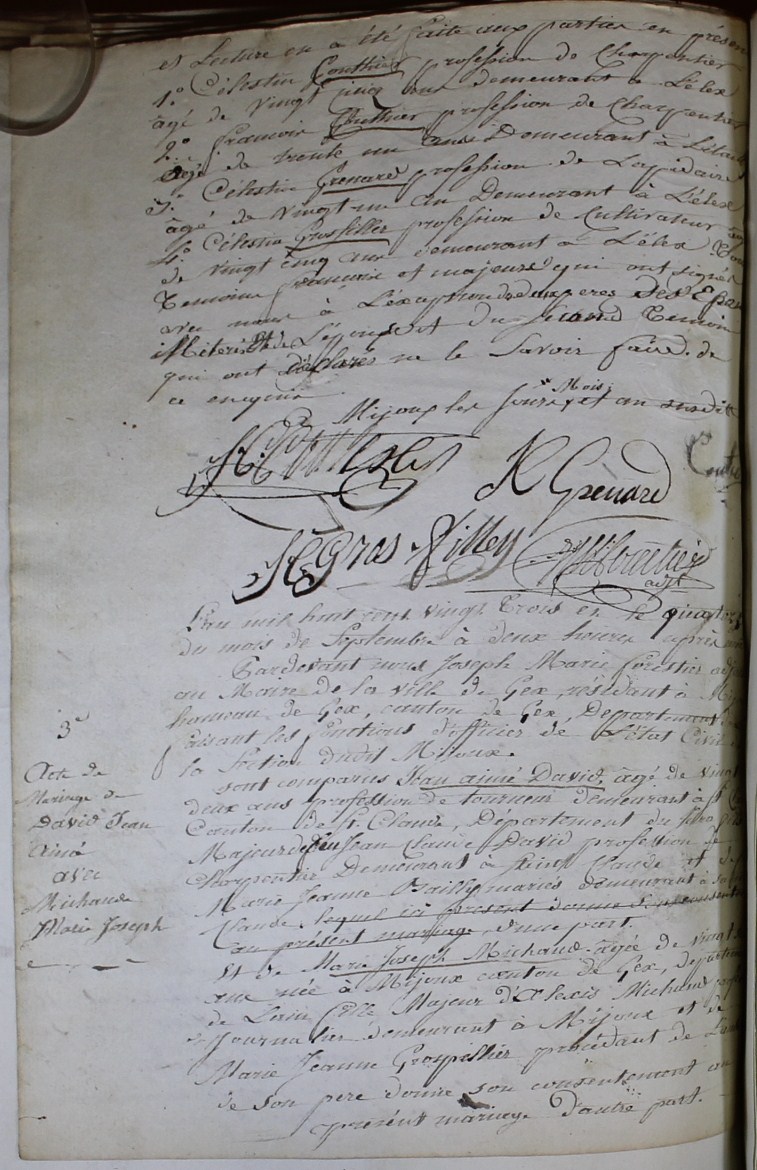 et Lecture en a été faite aux parties en présen
1.° Célestin Gouthier profession de Charpentier
âgé de vingt cinq ans demeurant à Lélex
2.° françois Gouthier profession de Charpentier
âgé de trente un ans Demeurant à
3.° Célestin Grenard profession de Lapidaire
âgé de vingt un an Demeurant à Lélex
4.° Célestin Grosfiller profession de Cultivateur
de vingt cinq ans demeurant à Lélex
Temoins français et majeurs qui ont signés
avec nous à L'éxception des deux peres des Epoux
et du second Temoin
qui ont déclarés ne le Savoir faire. de
ce enquis
Mijoux les jour, Mois et an susdit
Grenard
Gros filley
J M forestier
adjt
L'an mil huit cent vingt trois et le quatorz
du mois de Septembre à deux heures après
Pardevant nous Joseph Marie forestier adj
au Maire de la ville de Gex, résidant à Mij
hameau de Gex, canton de Gex, Departement
faisant les fonctions d'officier de l'état Civil
la Section dudit Mijoux.
3e
Acte de
Mariage de
David Jean
aimé
avec
Michaud
Marie Joseph
sont comparus Jean aimé David âgé de vingt
deux ans profession de tourneur demeurant à St
Canton de St. Claude, Departement du Jura
Majeur de feu Jean Claude David profession de
Charpentier Demeurant à Saint Claude et de
Marie Jeanne mariés demeurant à
Claude, lequel ici présent donne son consente
au présent mariage d'une part.
Et de Marie Joseph Michaud âgée de vingt
ans née à Mijoux canton de Gex, departement
de L'ain fille Majeur d'Alexis Michaud
Journalier demeurant à Mijoux et de
Marie Jeanne Grospillier procédant de
de son pere donne son consentement au
présent mariage D'autre part.